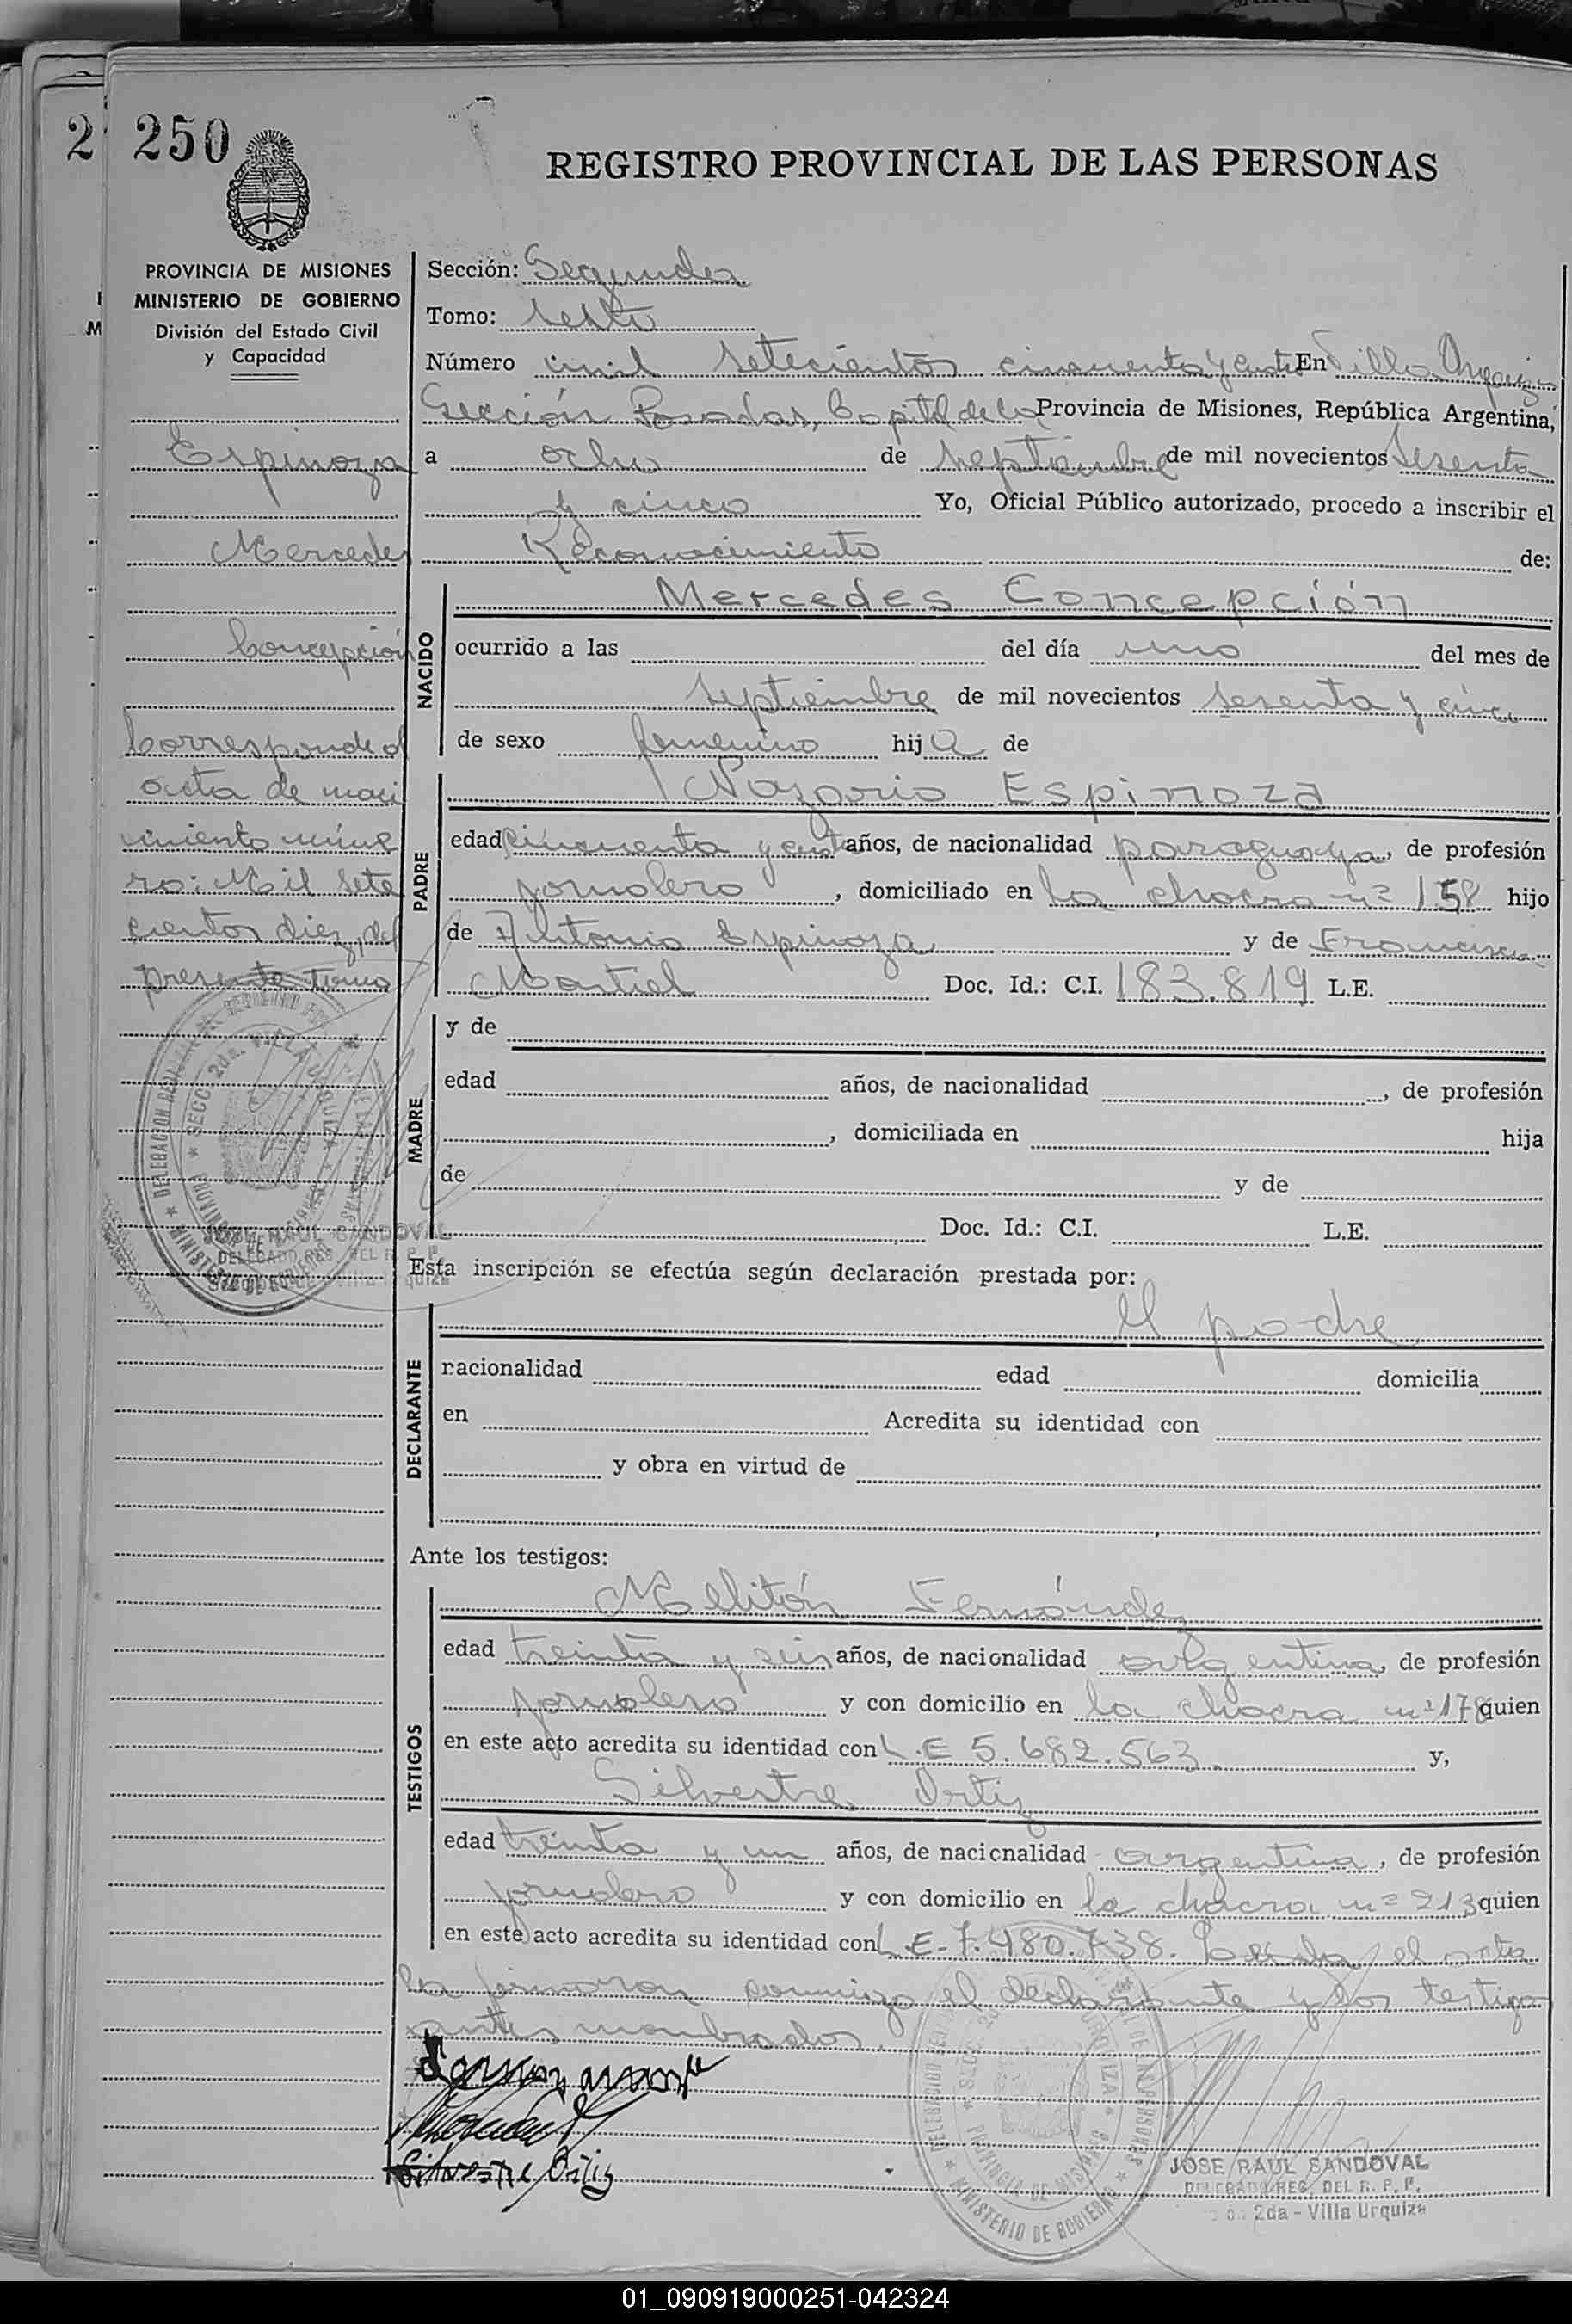 250
REGISTRO PROVINCIAL DE LAS PERSONAS
PROVINCIA DE MISIONES
MINISTERIO DE GOBIERNO
División del Estado Civil
y Capacidad
Espinoza
Mercedes
Concepción
Corresponde al
acta de naci
miento núme
ro: Mil sete
cientos diez, del
presente tomo
Sección: Segunda
Tomo: sexto
Número mil setecientos cincuenta y cuatro En Villa Urquiza
Sección Posadas, Capital de la Provincia de Misiones, República Argentina,
a ocho de septiembre de mil novecientos sesenta
y cinco Yo, Oficial Público autorizado, procedo a inscribir el
Reconocimiento de:
NACIDO
Mercedes Concepción
ocurrido a las del día uno del mes de
septiembre de mil novecientos sesenta y cinco
de sexo femenino hija de
PADRE
Nazario Espinoza
edad cincuenta y cuatro años, de nacionalidad paraguaya, de profesión
jornalero, domiciliado en la chacra nº 158 hijo
de Antonio Espinoza y de Francisca
Martiel Doc. Id.: C.I. 183.819 L.E.
MADRE
y de
edad años, de nacionalidad , de profesión
, domiciliada en hija
de y de
Doc. Id.: C.I. L.E.
Esta inscripción se efectúa según declaración prestada por:
DECLARANTE
El padre
nacionalidad edad domicilia
en Acredita su identidad con
y obra en virtud de
Ante los testigos:
TESTIGOS
Melitón Fernández
edad treinta y seis años, de nacionalidad argentina, de profesión
jornalero y con domicilio en la chacra nº 178 quien
en este acto acredita su identidad con L.E 5.682.563. y,
Silvestre Ortiz
edad treinta y un años, de nacionalidad argentina, de profesión
jornalero y con domicilio en la chacra nº 213 quien
en este acto acredita su identidad con L.E-7.480.738. Leída el acta
la firmaron conmigo el declarante y los testigos
antes nombrados.
Silvestre Ortiz
JOSE RAUL SANDOVAL
DELEGADO REG. DEL R. P. P.
2da - Villa Urquiza
01_090919000251-042324